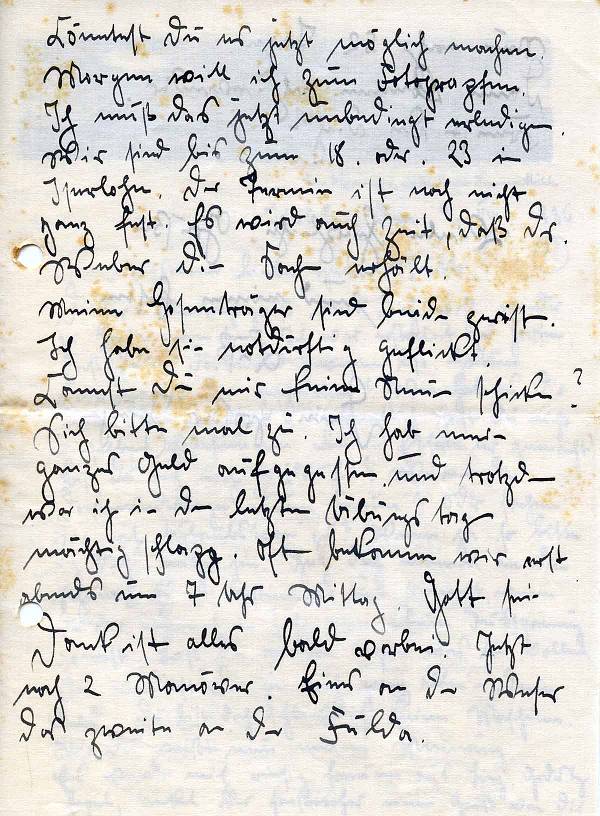 Könntest Du es jetzt möglich machen.
Morgen will ich zum Fotographen.
Ich muß das jetzt unbedingt erledigen.
Wir sind bis zum 18. oder. 23 in
Iserlohn. Der Termin ist noch nicht
ganz fest. Es wird auch Zeit, daß Dr.
Weber die Sache erhält.
Meine Hosenträger sind beide gerißt.
Ich habe sie notdürftig geflickt.
Kannst Du mir keine Neue schicken?
Sieh bitte mal zu. Ich hab mein
ganzes Geld aufgegessen und trotzdem
war ich in den letzten Übungstag
mächtig schlapp. Oft bekommen wir erst
abends um 7 Uhr Mittag. Gott sei
Dank ist alles bald vorbei. Jetzt
noch 2 Manöver. Eins an der Weser
das zweite an der Fulda.